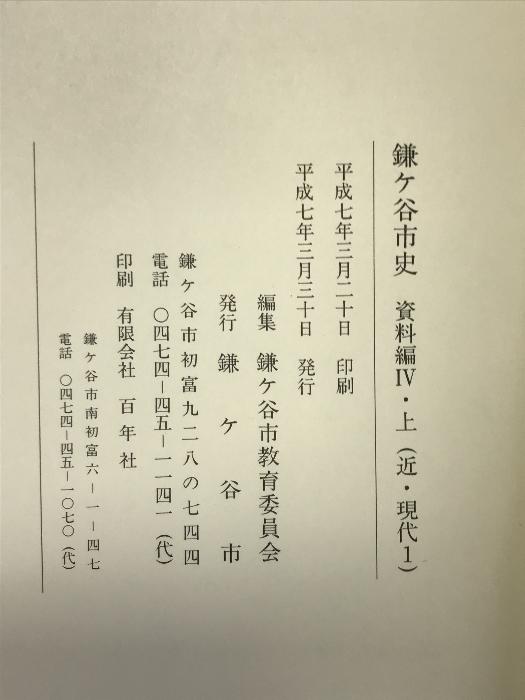 鎌ケ谷市史 資料編Ⅳ・上（近・現代１）
平成七年三月二十日 印刷
平成七年三月三十日 発行
編集 鎌ケ谷市教育委員会
発行 鎌ケ谷市
鎌ケ谷市初富九二八の七四四
電話 〇四七四―四五―一一四一（代）
印刷 有限会社 百年社
鎌ケ谷市南初富六―一―四七
電話 〇四七四―四五―一〇七〇（代）